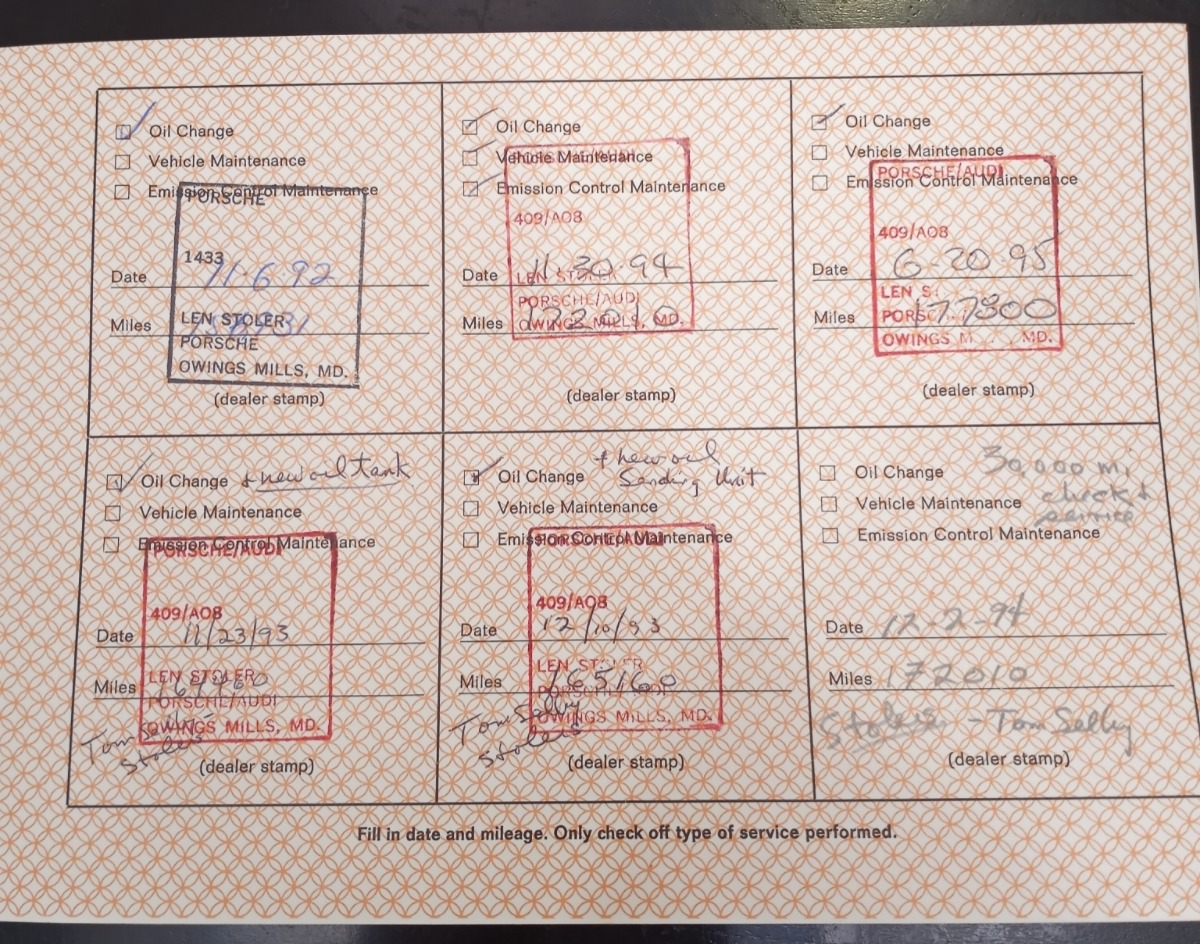 Oil Change
Vehicle Maintenance
Emission Control Maintenance
PORSCHE
1433
Date 11·6·92
Miles
LEN STOLER
PORSCHE
OWINGS MILLS, MD.
(dealer stamp)
Oil Change
Vehicle Maintenance
Emission Control Maintenance
409/AO8
Date 11·30·94
LEN
PORSCHE/AUDI
Miles
OWINGS MILLS, MD.
(dealer stamp)
Oil Change
Vehicle Maintenance
PORSCHE/AUDI
Emission Control Maintenance
409/AO8
Date 6-20-95
LEN S
Miles 177800
PORSC
OWINGS M MD.
(dealer stamp)
Oil Change + new oil tank
Vehicle Maintenance
Emission Control Maintenance
PORSCHE/AUDI
409/AO8
Date 11/23/93
LEN STOLER
Miles
PORSCHE/AUDI
OWINGS MILLS, MD.
Tom
Stolers
(dealer stamp)
+ new oil
Oil Change Sending Unit
Vehicle Maintenance
Emission Control Maintenance
PORSCHE/AUDI
409/AO8
Date 12/10/93
LEN STOLER
Miles 165160
PORSCHE/AUDI
OWINGS MILLS, MD.
Tom Selby
Stolers
(dealer stamp)
Oil Change 30,000 mi
Vehicle Maintenance check +
service
Emission Control Maintenance
Date 12-2-94
Miles 172010
Stolers Tom Selby
(dealer stamp)
Fill in date and mileage. Only check off type of service performed.